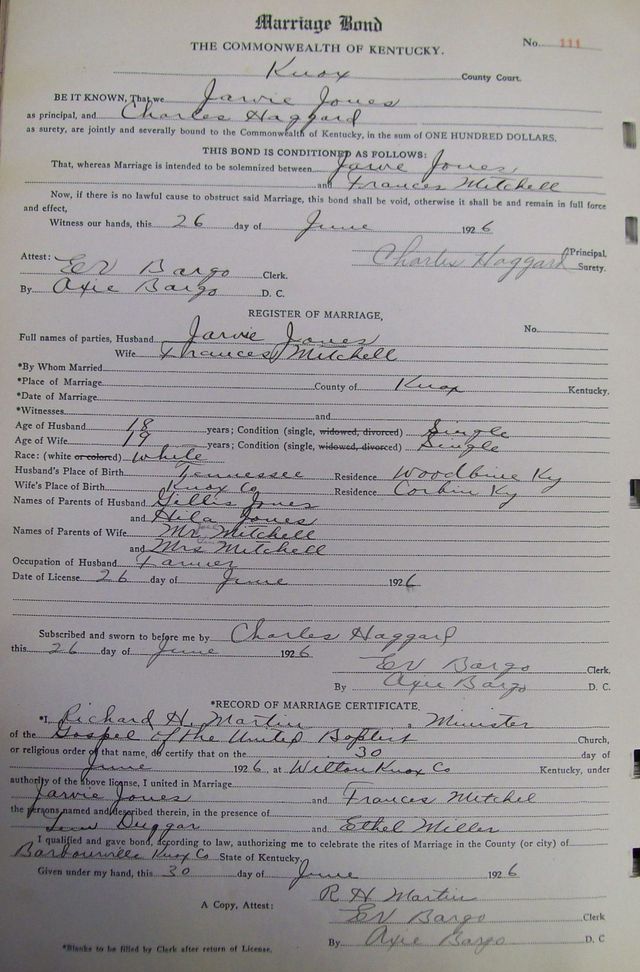 Marriage Bond
THE COMMONWEALTH OF KENTUCKY.
No. 111
Knox County Court.
BE IT KNOWN, That we Jarvie Jones
as principal, and Charles Haggard
as surety, are jointly and severally bound to the Commonwealth of Kentucky, in the sum of ONE HUNDRED DOLLARS.
THIS BOND IS CONDITIONED AS FOLLOWS:
That, whereas Marriage is intended to be solemnized between Jarvie Jones
and Frances Mitchell
Now, if there is no lawful cause to obstruct said Marriage, this bond shall be void, otherwise it shall be and remain in full force
and effect,
Witness our hands, this 26 day of June 1926
Principal,
Charles Haggard Surety.
Attest:
EV Bargo Clerk.
By Axie Bargo D. C.
REGISTER OF MARRIAGE,
No.
Full names of parties, Husband Jarvie Jones
Wife Frances Mitchell
*By Whom Married
*Place of Marriage County of Knox Kentucky.
*Date of Marriage
*Witnesses and
Age of Husband 18 years; Condition (single, widowed, divorced) Single
Age of Wife 19 years; Condition (single, widowed, divorced) Single
Race: (white or colored) White
Husband's Place of Birth Tennessee Residence Woodbine Ky
Wife's Place of Birth Knox Co Residence Corbin Ky
Names of Parents of Husband Gillis Jones
and Hila Jones
Names of Parents of Wife Mr Mitchell
and Mrs Mitchell
Occupation of Husband Farmer
Date of License 26 day of June 1926
Subscribed and sworn to before me by Charles Haggard
this 26 day of June 1926
EV Bargo Clerk,
By Axie Bargo D. C.
*RECORD OF MARRIAGE CERTIFICATE,
*I, Richard H. Martin, a Minister
of the Gospel of the United Baptist Church,
or religious order of that name, do certify that on the 30 day of
June 1926, at Wilton Knox Co Kentucky, under
authority of the above license, I united in Marriage
Jarvie Jones and Frances Mitchel
the persons named and described therein, in the presence of
Duggar and Ethel Miller
I qualified and gave bond, according to law, authorizing me to celebrate the rites of Marriage in the County (or city) of
Barbourville Knox Co State of Kentucky
Given under my hand, this 30 day of June 1926
R H Martin
A Copy, Attest: EV Bargo Clerk
By Axie Bargo D. C
*Blanks to be filled by Clerk after return of License.